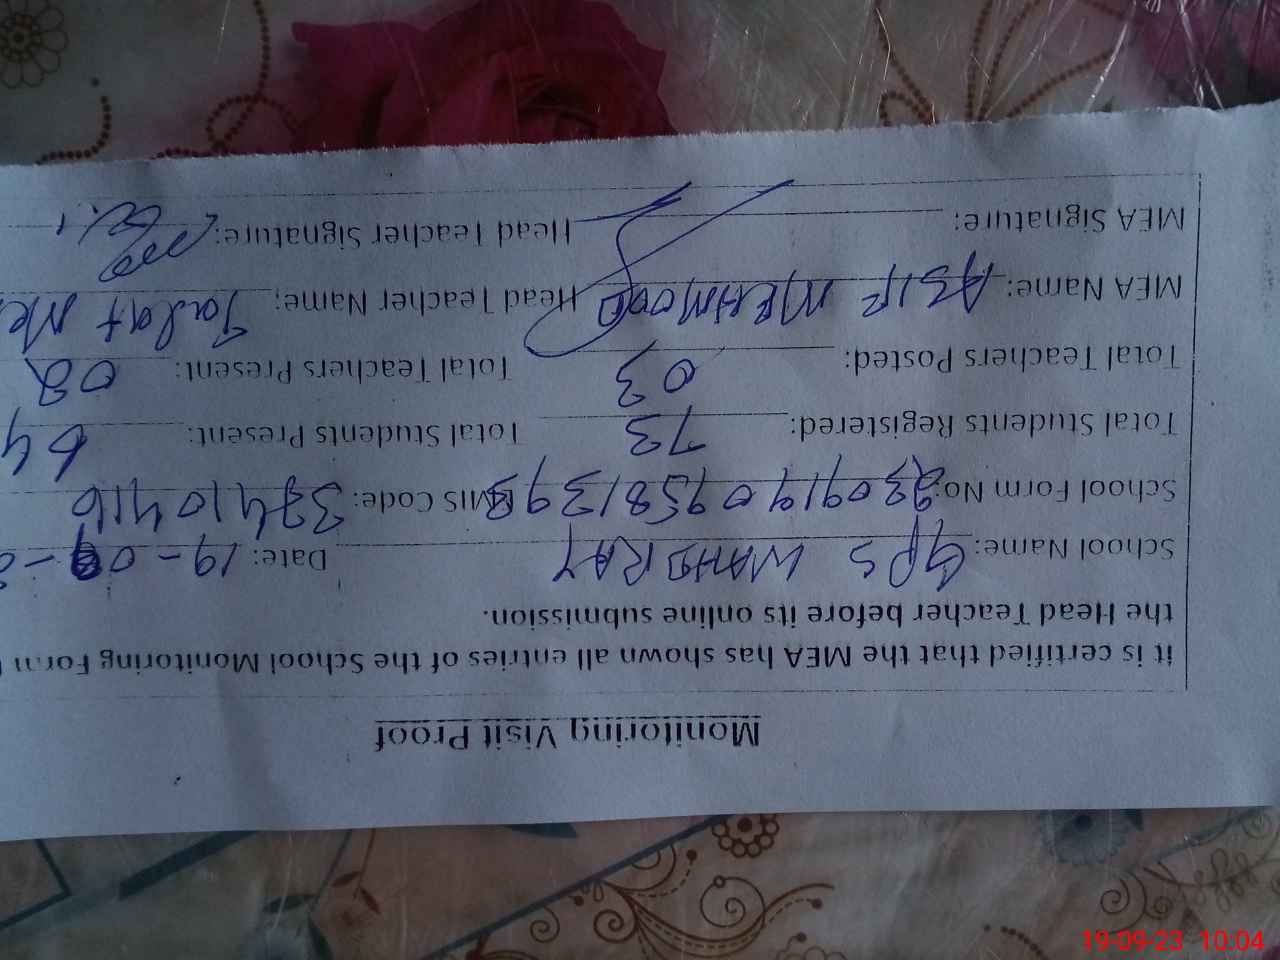 Monitoring Visit Proof
it is certified that the MEA has shown all entries of the School Monitoring Form
the Head Teacher before its online submission.
School Name: GPS WAHGRAY Date: 19-09-
School Form No: MIS Code: 37410416
Total Students Registered: 73 Total Students Present: 64
Total Teachers Posted: 03 Total Teachers Present: 02
MEA Name: ASIF MEHMOOD Head Teacher Name: Talat Me
MEA Signature: Head Teacher Signature:
19-09-23 10:04